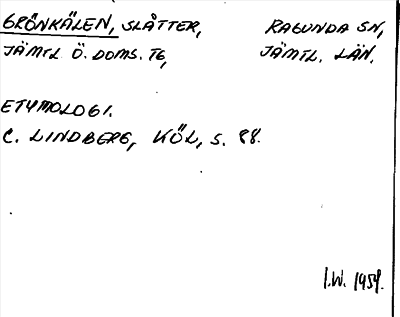 GRÖNKÄLEN, SLÅTTER, RAGUNDA SN,
JÄMTL. Ö. DOMS. TG, JÄMTL. LÄN.
ETYMOLOGI.
C. LINDBERG, KÖL, S. 88.
I.W. 1954.